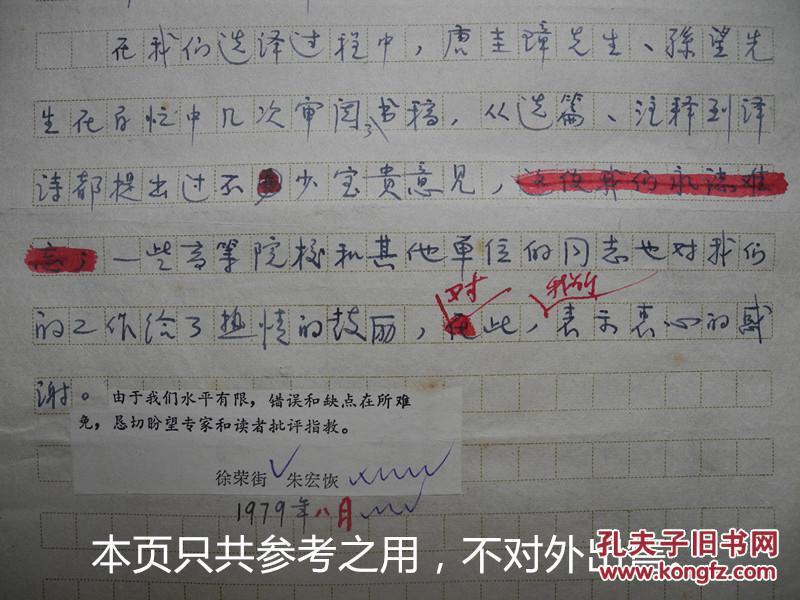 在我们选译过程中，唐圭璋先生、孙望先
生在百忙中几次审阅了书稿，从选篇、注释到译
诗都提出过不少宝贵意见，这使我们永誌难
忘；一些高等院校和其他单位的同志也对我们
对 我们
的工作给了热情的鼓励，在此，表示衷心的感
谢。
由于我们水平有限，错误和缺点在所难
免，恳切盼望专家和读者批评指教。
徐荣街 朱宏恢
1979年八月
本页只共参考之用，不对外出售
孔夫子旧书网
www.kongfz.com